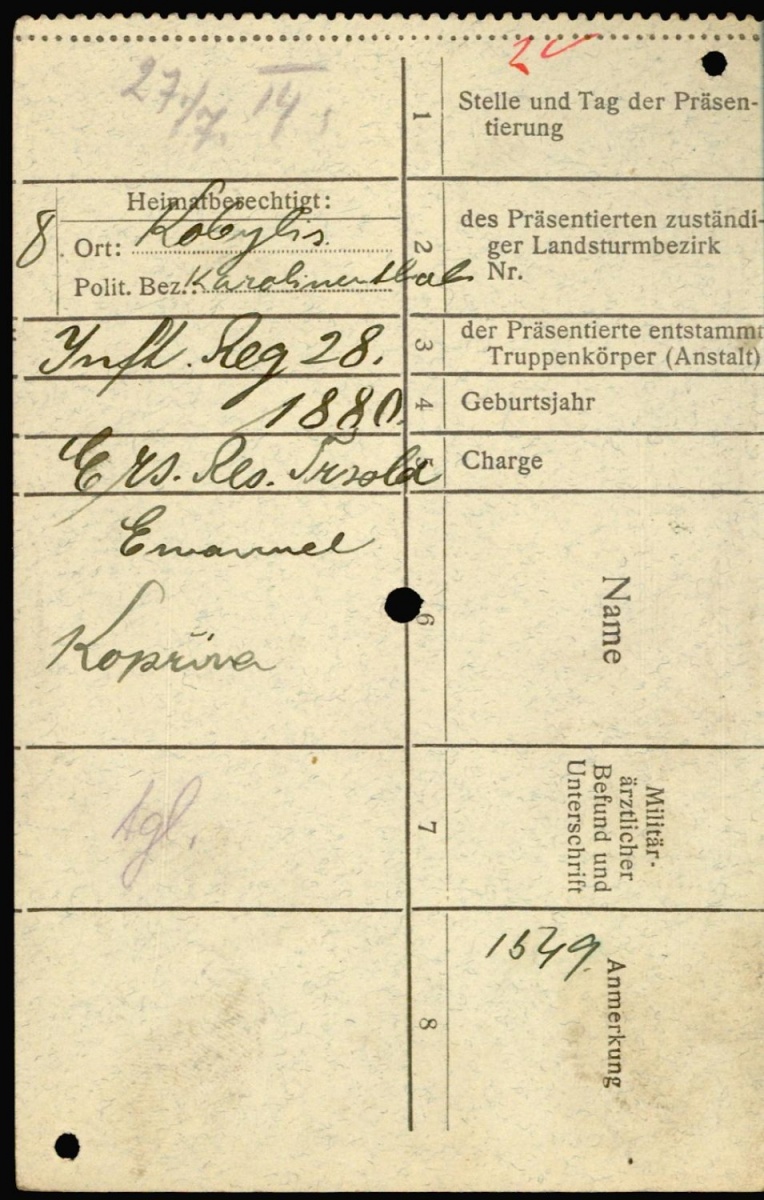 2
27./7. 14.
1
Stelle und Tag der Präsen-
tierung
Heimatberechtigt:
8
Ort: Kobylis
Polit. Bez.: Karolinenthal
2
des Präsentierten zuständi-
ger Landsturmbezirk
Nr.
Inft. Reg 28.
3
der Präsentierte entstammt
Truppenkörper (Anstalt)
1880.
4
Geburtsjahr
Ers. Res.
5
Charge
Emanuel
Kopřiva
6
Name
tgl.
7
Militär-
ärztlicher
Befund und
Unterschrift
1549.
8
Anmerkung